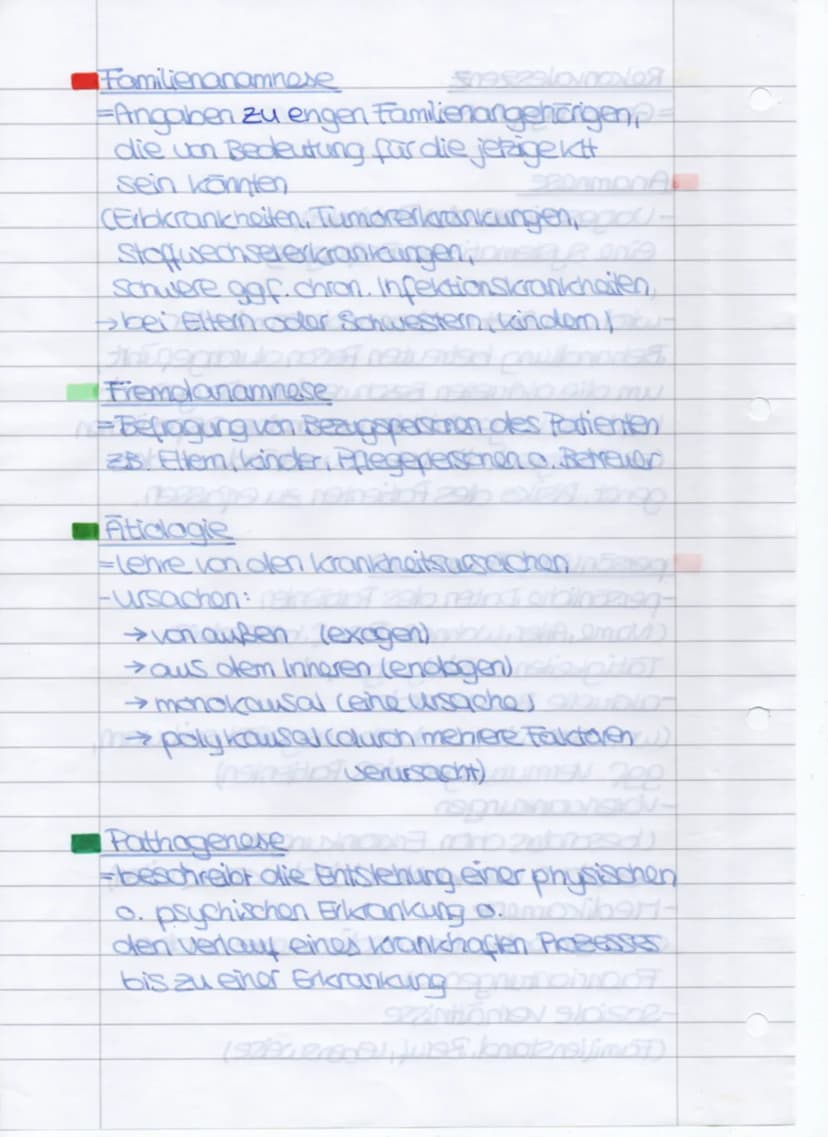 Familienanamnese
=Angaben zu engen Familienangehörigen,
die von Bedeutung für die jetzige KH
sein könnten
(Erbkrankheiten, Tumorerkrankungen,
Stoffwechselerkrankungen,
schwere ggf. chron. Infektionskrankheiten,
→ bei Eltern oder Schwestern, Kindern)
Fremdanamnese
=Befragung von Bezugspersonen des Patienten
zB. Eltern, Kinder, Pflegepersonen o. Betreuer
Ätiologie
=Lehre von den Krankheitsursachen
-Ursachen:
→ von außen (exogen)
→ aus dem Inneren (endogen)
→ monokausal (eine Ursache)
→ polykausal (durch mehrere Faktoren
verursacht)
Pathogenese
=beschreibt die Entstehung einer physischen
o. psychischen Erkrankung o.
den Verlauf eines krankhaften Prozesses
bis zu einer Erkrankung